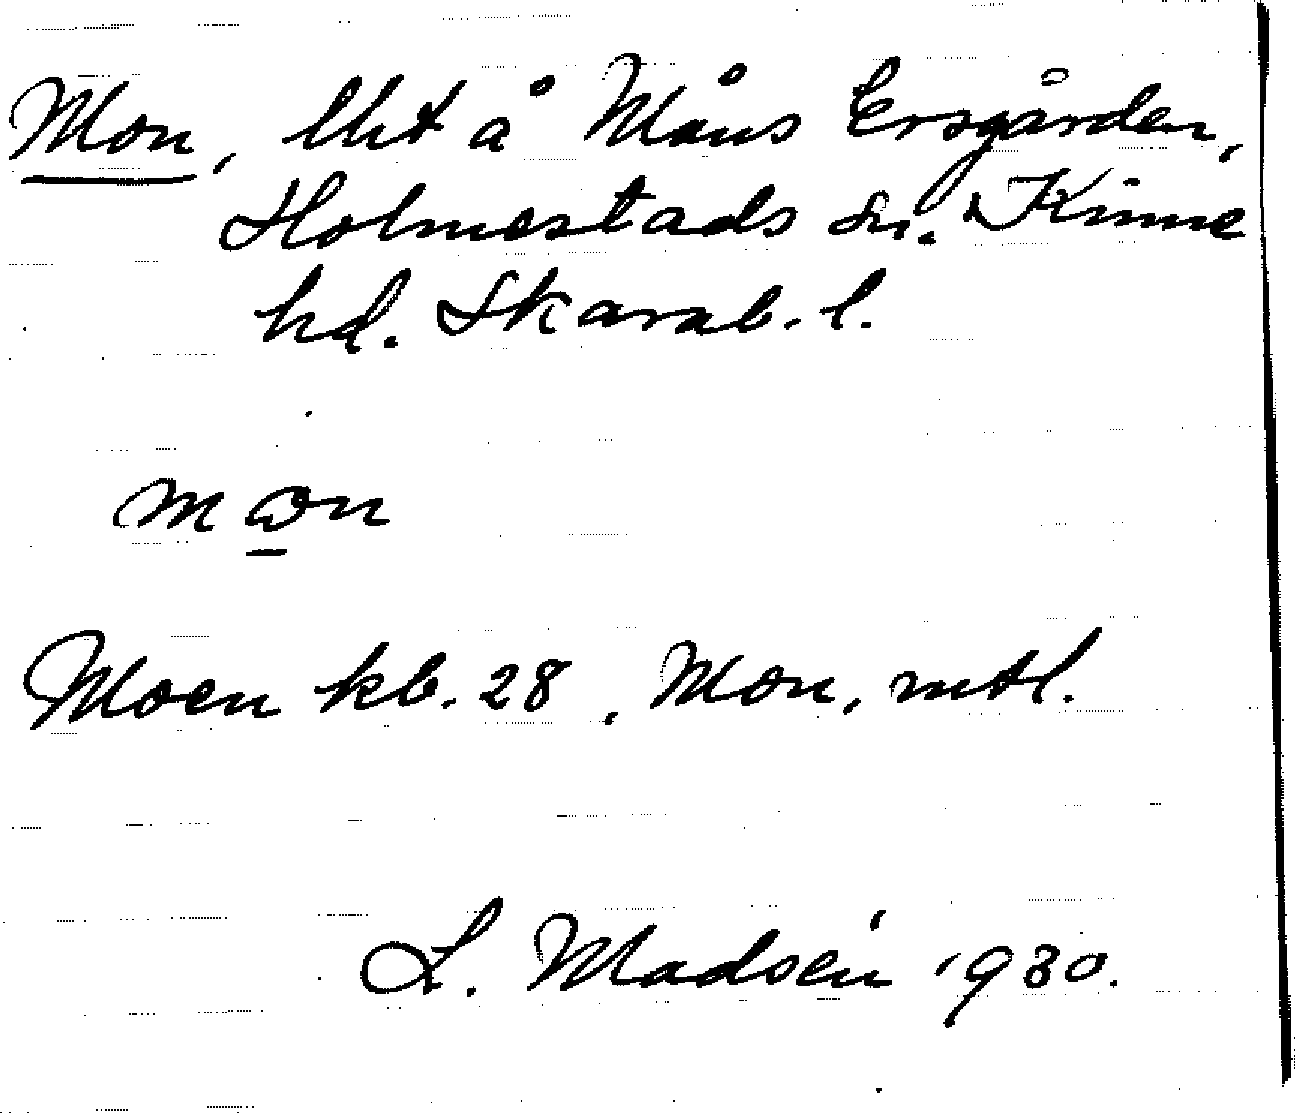 Mon, lht å Måns Ersgården,
Holmestads sn. Kinne
hd. Skarab. l.
mωn
Moen kb. 28, Mon, mtl.
L. Madsén 1930.